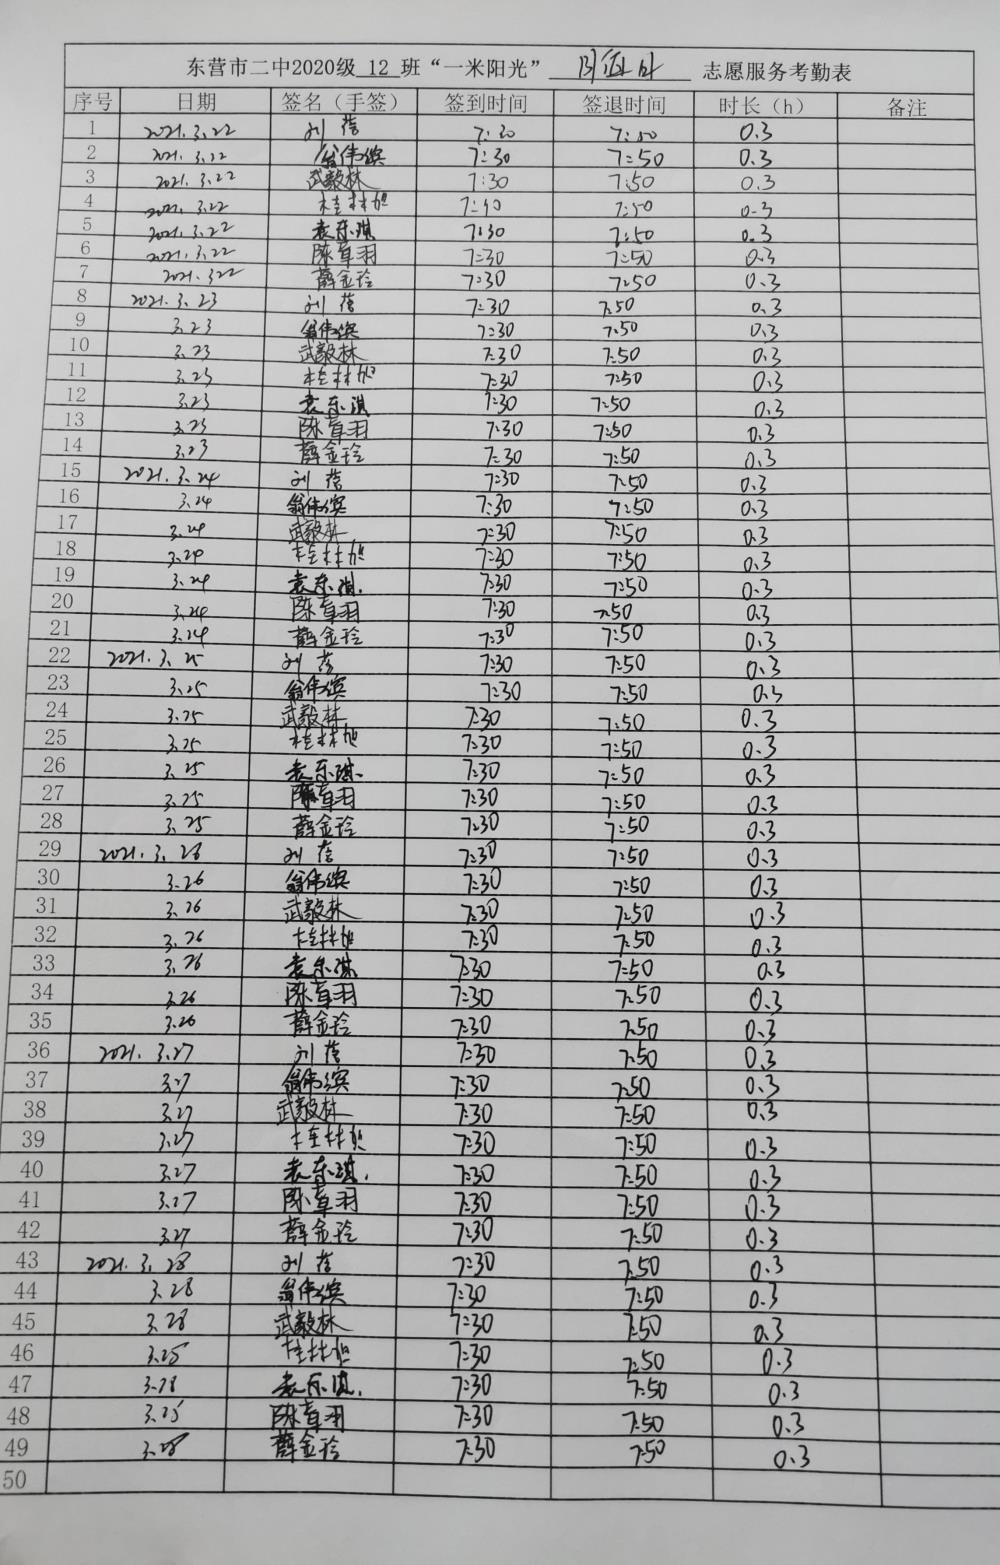 东营市二中2020级 12 班“一米阳光” 志愿服务考勤表
序号 日期 签名（手签） 签到时间 签退时间 时长（h） 备注
1 2021.3.22 刘蓓 7:30 7:50 0.3
2 2021.3.22 翁伟缤 7:30 7:50 0.3
3 2021.3.22 武毅林 7:30 7:50 0.3
4 2021.3.22 桂林旭 7:40 7:50 0.3
5 2021.3.22 袁乐琪 7:30 7:50 0.3
6 2021.3.22 陈章羽 7:30 7:50 0.3
7 2021.3.22 薛金玲 7:30 7:50 0.3
8 2021.3.23 刘蓓 7:30 7:50 0.3
9 3.23 翁伟缤 7:30 7:50 0.3
10 3.23 武毅林 7:30 7:50 0.3
11 3.23 桂林旭 7:30 7:50 0.3
12 3.23 袁乐琪 7:30 7:50 0.3
13 3.23 陈章羽 7:30 7:50 0.3
14 3.23 薛金玲 7:30 7:50 0.3
15 2021.3.24 刘蓓 7:30 7:50 0.3
16 3.24 翁伟缤 7:30 7:50 0.3
17 3.24 武毅林 7:30 7:50 0.3
18 3.24 桂林旭 7:30 7:50 0.3
19 3.24 袁乐琪. 7:30 7:50 0.3
20 3.24 陈章羽 7:30 7:50 0.3
21 3.24 薛金玲 7:30 7:50 0.3
22 2021.3.25 刘蓓 7:30 7:50 0.3
23 3.25 翁伟缤 7:30 7:50 0.3
24 3.25 武毅林 7:30 7:50 0.3
25 3.25 桂林旭 7:30 7:50 0.3
26 3.25 袁乐琪. 7:30 7:50 0.3
27 3.25 陈章羽 7:30 7:50 0.3
28 3.25 薛金玲 7:30 7:50 0.3
29 2021.3.26 刘蓓 7:30 7:50 0.3
30 3.26 翁伟缤 7:30 7:50 0.3
31 3.26 武毅林 7:30 7:50 0.3
32 3.26 桂林旭 7:30 7:50 0.3
33 3.26 袁乐琪 7:30 7:50 0.3
34 3.26 陈章羽 7:30 7:50 0.3
35 3.26 薛金玲 7:30 7:50 0.3
36 2021.3.27 刘蓓 7:30 7:50 0.3
37 3.27 翁伟缤 7:30 7:50 0.3
38 3.27 武毅林 7:30 7:50 0.3
39 3.27 桂林旭 7:30 7:50 0.3
40 3.27 袁乐琪. 7:30 7:50 0.3
41 3.27 陈章羽 7:30 7:50 0.3
42 3.27 薛金玲 7:30 7:50 0.3
43 2021.3.28 刘蓓 7:30 7:50 0.3
44 3.28 翁伟缤 7:30 7:50 0.3
45 3.28 武毅林 7:30 7:50 0.3
46 3.28 桂林旭 7:30 7:50 0.3
47 3.28 袁乐琪. 7:30 7:50 0.3
48 3.28 陈章羽 7:30 7:50 0.3
49 3.28 薛金玲 7:30 7:50 0.3
50